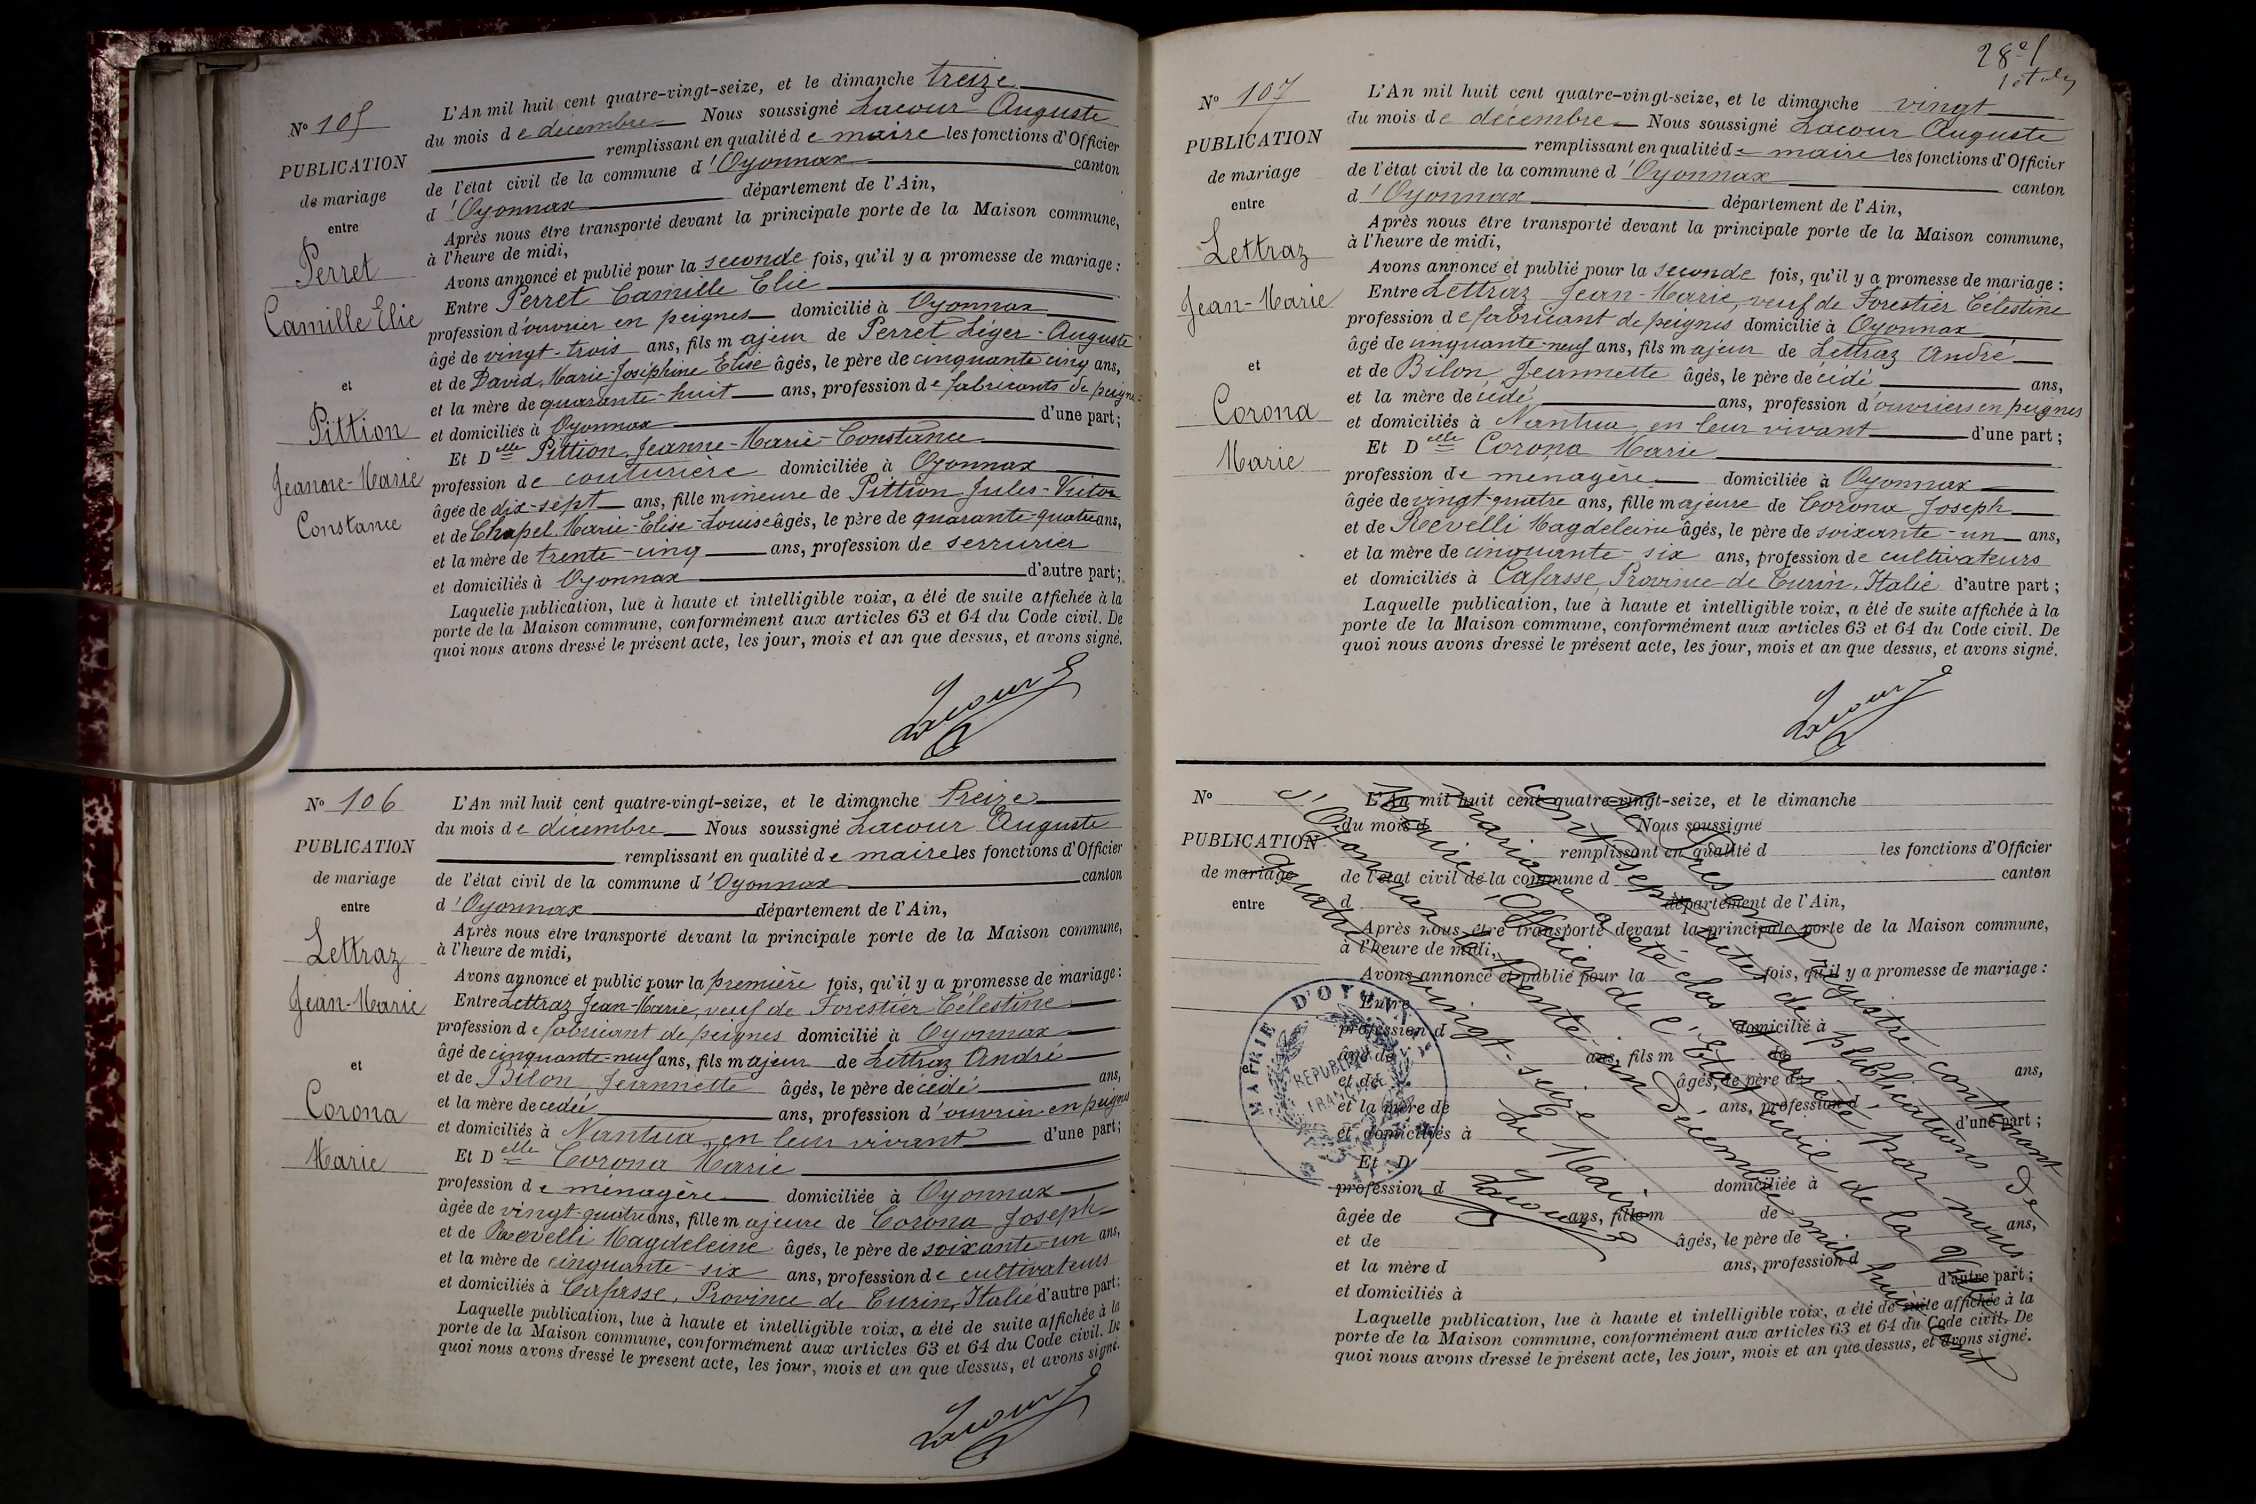 N° 105
PUBLICATION
de mariage
entre
Perret
Camille Elie
et
Pittion
Jeanne-Marie
Constance
L'An mil huit cent quatre-vingt-seize, et le dimanche treize
du mois de décembre Nous soussigné Lacour Auguste
remplissant en qualité de maire les fonctions d'Officier
de l'état civil de la commune d'Oyonnax canton
d'Oyonnax département de l'Ain,
Après nous être transporté devant la principale porte de la Maison commune,
à l'heure de midi,
Avons annoncé et publié pour la seconde fois, qu'il y a promesse de mariage :
Entre Perret Camille Elie
profession d'ouvrier en peignes domicilié à Oyonnax
âgé de vingt-trois ans, fils majeur de Perret Léger-Auguste
et de David, Marie-Joséphine Elise âgés, le père de cinquante cinq ans,
et la mère de quarante-huit ans, profession de fabricants de peignes
et domiciliés à Oyonnax d'une part;
Et Delle Pittion, Jeanne-Marie-Constance
profession de couturière domiciliée à Oyonnax
âgée de dix-sept ans, fille mineure de Pittion Jules-Victor
et de Chapel Marie-Elise-Louise âgés, le père de quarante-quatre ans,
et la mère de trente-cinq ans, profession de serrurier
et domiciliés à Oyonnax d'autre part;
Laquelle publication, lue à haute et intelligible voix, a été de suite affichée à la
porte de la Maison commune, conformément aux articles 63 et 64 du Code civil. De
quoi nous avons dressé le présent acte, les jour, mois et an que dessus, et avons signé.
Lacour
N° 106
PUBLICATION
de mariage
entre
Lettraz
Jean-Marie
et
Corona
Marie
L'An mil huit cent quatre-vingt-seize, et le dimanche treize
du mois de décembre Nous soussigné Lacour Auguste
remplissant en qualité de maire les fonctions d'Officier
de l'état civil de la commune d'Oyonnax canton
d'Oyonnax département de l'Ain,
Après nous être transporté devant la principale porte de la Maison commune,
à l'heure de midi,
Avons annoncé et publié pour la première fois, qu'il y a promesse de mariage :
Entre Lettraz Jean-Marie, veuf de Forestier Célestine
profession de fabricant de peignes domicilié à Oyonnax
âgé de cinquante-neuf ans, fils majeur de Lettraz André
et de Bilon Jeannette âgés, le père décédé ans,
et la mère decedée ans, profession d'ouvrier en peignes
et domiciliés à Nantua, en leur vivant d'une part;
Et Delle Corona Marie
profession de ménagère domiciliée à Oyonnax
âgée de vingt-quatre ans, fille majeure de Corona Joseph
et de Revelli Magdeleine âgés, le père de soixante-un ans,
et la mère de cinquante-six ans, profession de cultivateurs
et domiciliés à Cafasse, Province de Turin, Italie d'autre part;
Laquelle publication, lue à haute et intelligible voix, a été de suite affichée à la
porte de la Maison commune, conformément aux articles 63 et 64 du Code civil. De
quoi nous avons dressé le présent acte, les jour, mois et an que dessus, et avons signé.
Lacour
N° 107
PUBLICATION
de mariage
entre
Lettraz
Jean-Marie
et
Corona
Marie
L'An mil huit cent quatre-vingt-seize, et le dimanche vingt
du mois de décembre Nous soussigné Lacour Auguste
remplissant en qualité de maire les fonctions d'Officier
de l'état civil de la commune d'Oyonnax canton
d'Oyonnax département de l'Ain,
Après nous être transporté devant la principale porte de la Maison commune,
à l'heure de midi,
Avons annoncé et publié pour la seconde fois, qu'il y a promesse de mariage :
Entre Lettraz Jean-Marie, veuf de Forestier Célestine
profession de fabricant de peignes domicilié à Oyonnax
âgé de cinquante-neuf ans, fils majeur de Lettraz André
et de Bilon Jeannette âgés, le père décédé ans,
et la mère décédé ans, profession d'ouvriers en peignes
et domiciliés à Nantua, en leur vivant d'une part ;
Et Delle Corona Marie
profession de ménagère domiciliée à Oyonnax
âgée de vingt-quatre ans, fille majeure de Corona Joseph
et de Revelli Magdeleine âgés, le père de soixante-un ans,
et la mère de cinquante-six ans, profession de cultivateurs
et domiciliés à Cafasse, Province de Turin, Italie d'autre part ;
Laquelle publication, lue à haute et intelligible voix, a été de suite affichée à la
porte de la Maison commune, conformément aux articles 63 et 64 du Code civil. De
quoi nous avons dressé le présent acte, les jour, mois et an que dessus, et avons signé.
Lacour
N°
PUBLICATION
de mariage
entre
et
L'An mil huit cent quatre-vingt-seize, et le dimanche
du mois d Nous soussigné
remplissant en qualité d les fonctions d'Officier
de l'état civil de la commune d canton
d département de l'Ain,
Après nous être transporté devant la principale porte de la Maison commune,
à l'heure de midi,
Avons annoncé et publié pour la fois, qu'il y a promesse de mariage :
Entre
profession d domicilié à
âgé de ans, fils m de
et de âgés, le père de ans,
et la mère de ans, profession d
et domiciliés à d'une part ;
Et D
profession d domiciliée à
âgée de ans, fille m de
et de âgés, le père de ans,
et la mère d ans, profession d
et domiciliés à d'autre part ;
Laquelle publication, lue à haute et intelligible voix, a été de suite affichée à la
porte de la Maison commune, conformément aux articles 63 et 64 du Code civil. De
quoi nous avons dressé le présent acte, les jour, mois et an que dessus, et avons signé.
Le présent registre contenant
cent sept actes de publications de
mariage a été clos et arrêté par nous
Maire, Officier de l'Etat civil de la Ville
d'Oyonnax le trente-un décembre mil huit cent
quatre-vingt-seize
Le Maire
Lacour
MAIRIE D'OYONNAX
REPUBLIQUE
FRANÇAISE